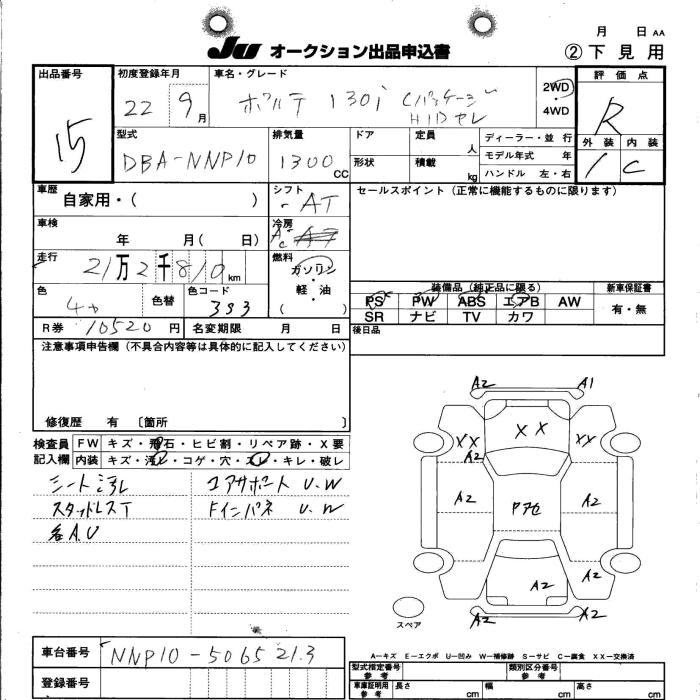 月 日 AA
JU オークション出品申込書 ② 下見用
出品番号 初度登録年月 車名・グレード 評価点
15 22 9月 ポルテ 130i Cパッケージ HIDセレ 2WD・4WD R
型式 排気量 ドア 定員 人 ディーラー・並行 外装 内装
DBA-NNP10 1300 CC 形状 積載 kg モデル年式 年 1 C
ハンドル 左・右
車歴 自家用・( ) シフト AT セールスポイント(正常に機能するものに限ります)
車検 年 月( 日) 冷房 AC
走行 21万2千810km 燃料 ガソリン・軽・油 ( )
色 色替 色コード 3S3
装備品(純正品に限る) 新車保証書
PS PW ABS エアB AW 有・無
SR ナビ TV カワ
R券 10520円 名変期限 月 日 後日品
注意事項申告欄(不具合内容等は具体的に記入してください)
修復歴 有 〔箇所 〕
検査員 FW キズ・飛石・ヒビ割・リペア跡・X要
記入欄 内装 キズ・汚レ・コゲ・穴・スレ・キレ・破レ
シート汚レ コアサポート U.W
スタッドレスT Fインパネ U.W
各A.U
A2 A1
XX XX XX
A2
A2 Pアセ A2
A2 A2
A2 A2
スペア
A-キズ E-エクボ U-凹み W-補修跡 S-サビ C-腐食 XX-交換済
車台番号 NNP10-5065213
登録番号
型式指定番号 参考 類別区分番号 参考
車庫証明用 参考 長さ cm 幅 cm 高さ cm